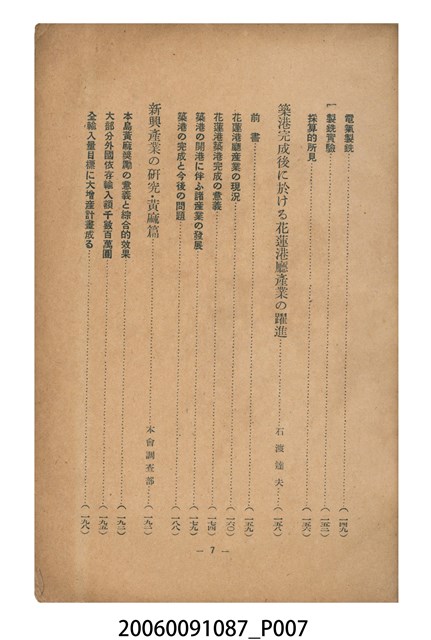 電氣製銑……(一四九)
製銑實驗……(一五二)
採算的所見……(一五六)
築港完成後に於ける花蓮港廳產業の躍進……石渡達夫……(一五八)
前書……(一五九)
花蓮港廳產業の現況……(一六〇)
花蓮港築港完成の意義……(一七四)
築港の開港に伴ふ諸產業の發展……(一七九)
築港の完成と今後の問題……(一八八)
新興產業の研究・黃麻篇……本會調查部……(一九一)
本島黃麻獎勵の意義と綜合的效果……(一九二)
大部分外國依存輸入額千數百萬圓……(一九五)
全輸入量目標に大增產計畫成る……(一九八)
— 7 —
20060091087_P007